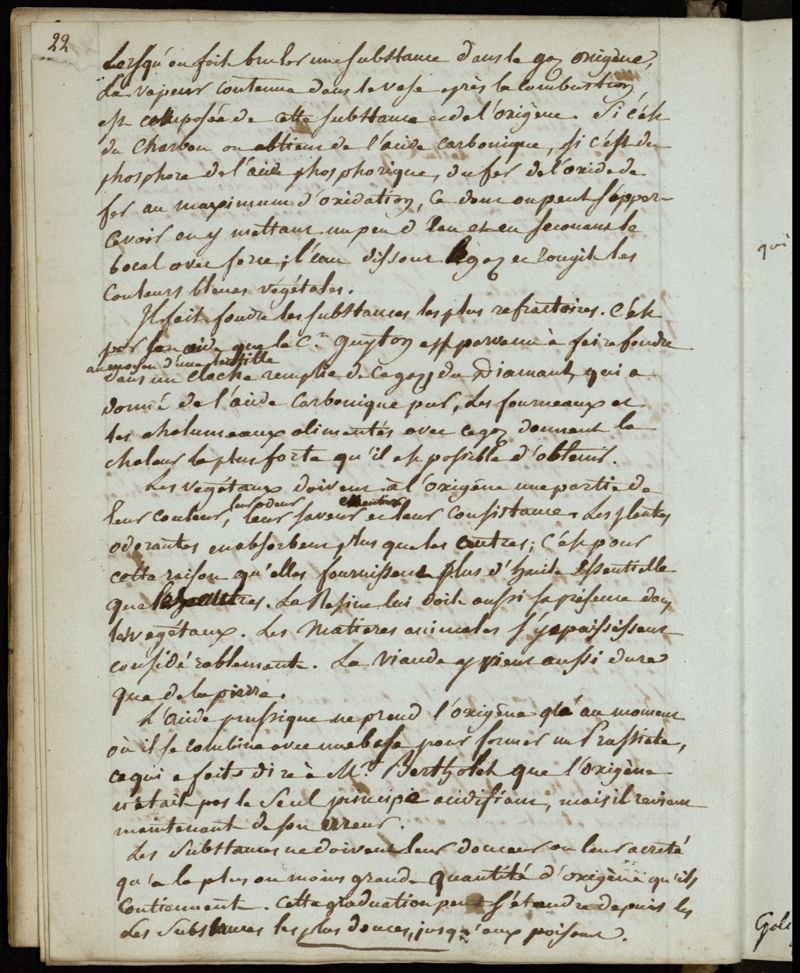 22
Lorsqu'on fait bruler une substance dans le gaz oxigène,
La vapeur contenue dans le vase après la combustion
est composée de cette substance et de l'oxigène. Si c'est
du Charbon on obtient de l'acide carbonique, si c'est du
phosphore de l'acide phosphorique, du fer de l'oxide de
fer au maximum d'oxidation, Ce dont on peut s'apper-
cevoir en y mettant un peu d'Eau et en secouant le
bocal avec force; l'eau dissout le gaz et rougit les
Couleurs bleues végétales.
Il fait fondre les substances les plus refractaires. C'est
par son aide que le C.n Guyton est parvenu à faire fondre
au moyen d'une lentille
dans un cloche remplie de ce gaz, du Diamant, qui a
donné de l'acide Carbonique pur, Les fourneaux et
les chalumeaux alimentés avec ce gaz donnent la
chaleur la plus forte qu'il est possible d'obtenir.
Les végétaux doivent à l'oxigène une partie de
leur odeur
leur couleur, leur saveur et leur Consistance. Les plantes
odorantes en absorbent plus que les autres; C'est pour
cette raison qu'elles fournissent plus d'huile Essentielle
que les autres. La Resine lui doit aussi sa présence dans
les végétaux. Les Matieres animales s'y epaississent
considérablement. La Viande y vient aussi dure
que de la pierre.
L'acide prussique ne prend l'oxigène qu'au moment
où il se combine avec une base pour former un Prussiate,
ce qui a fait dire à Mr. Bertholet que l'oxigène
n'était pas le Seul principe acidifiant, mais il revient
maintenant de son erreur.
Les Substances ne doivent leur douceur ou leur acreté
qu'a la plus ou moins grande Quantité d'oxigène qu'ils
Contiennent. Cette graduation peut s'étendre depuis les
Les Substances les plus douces, jusqu'aux poisons.
qui